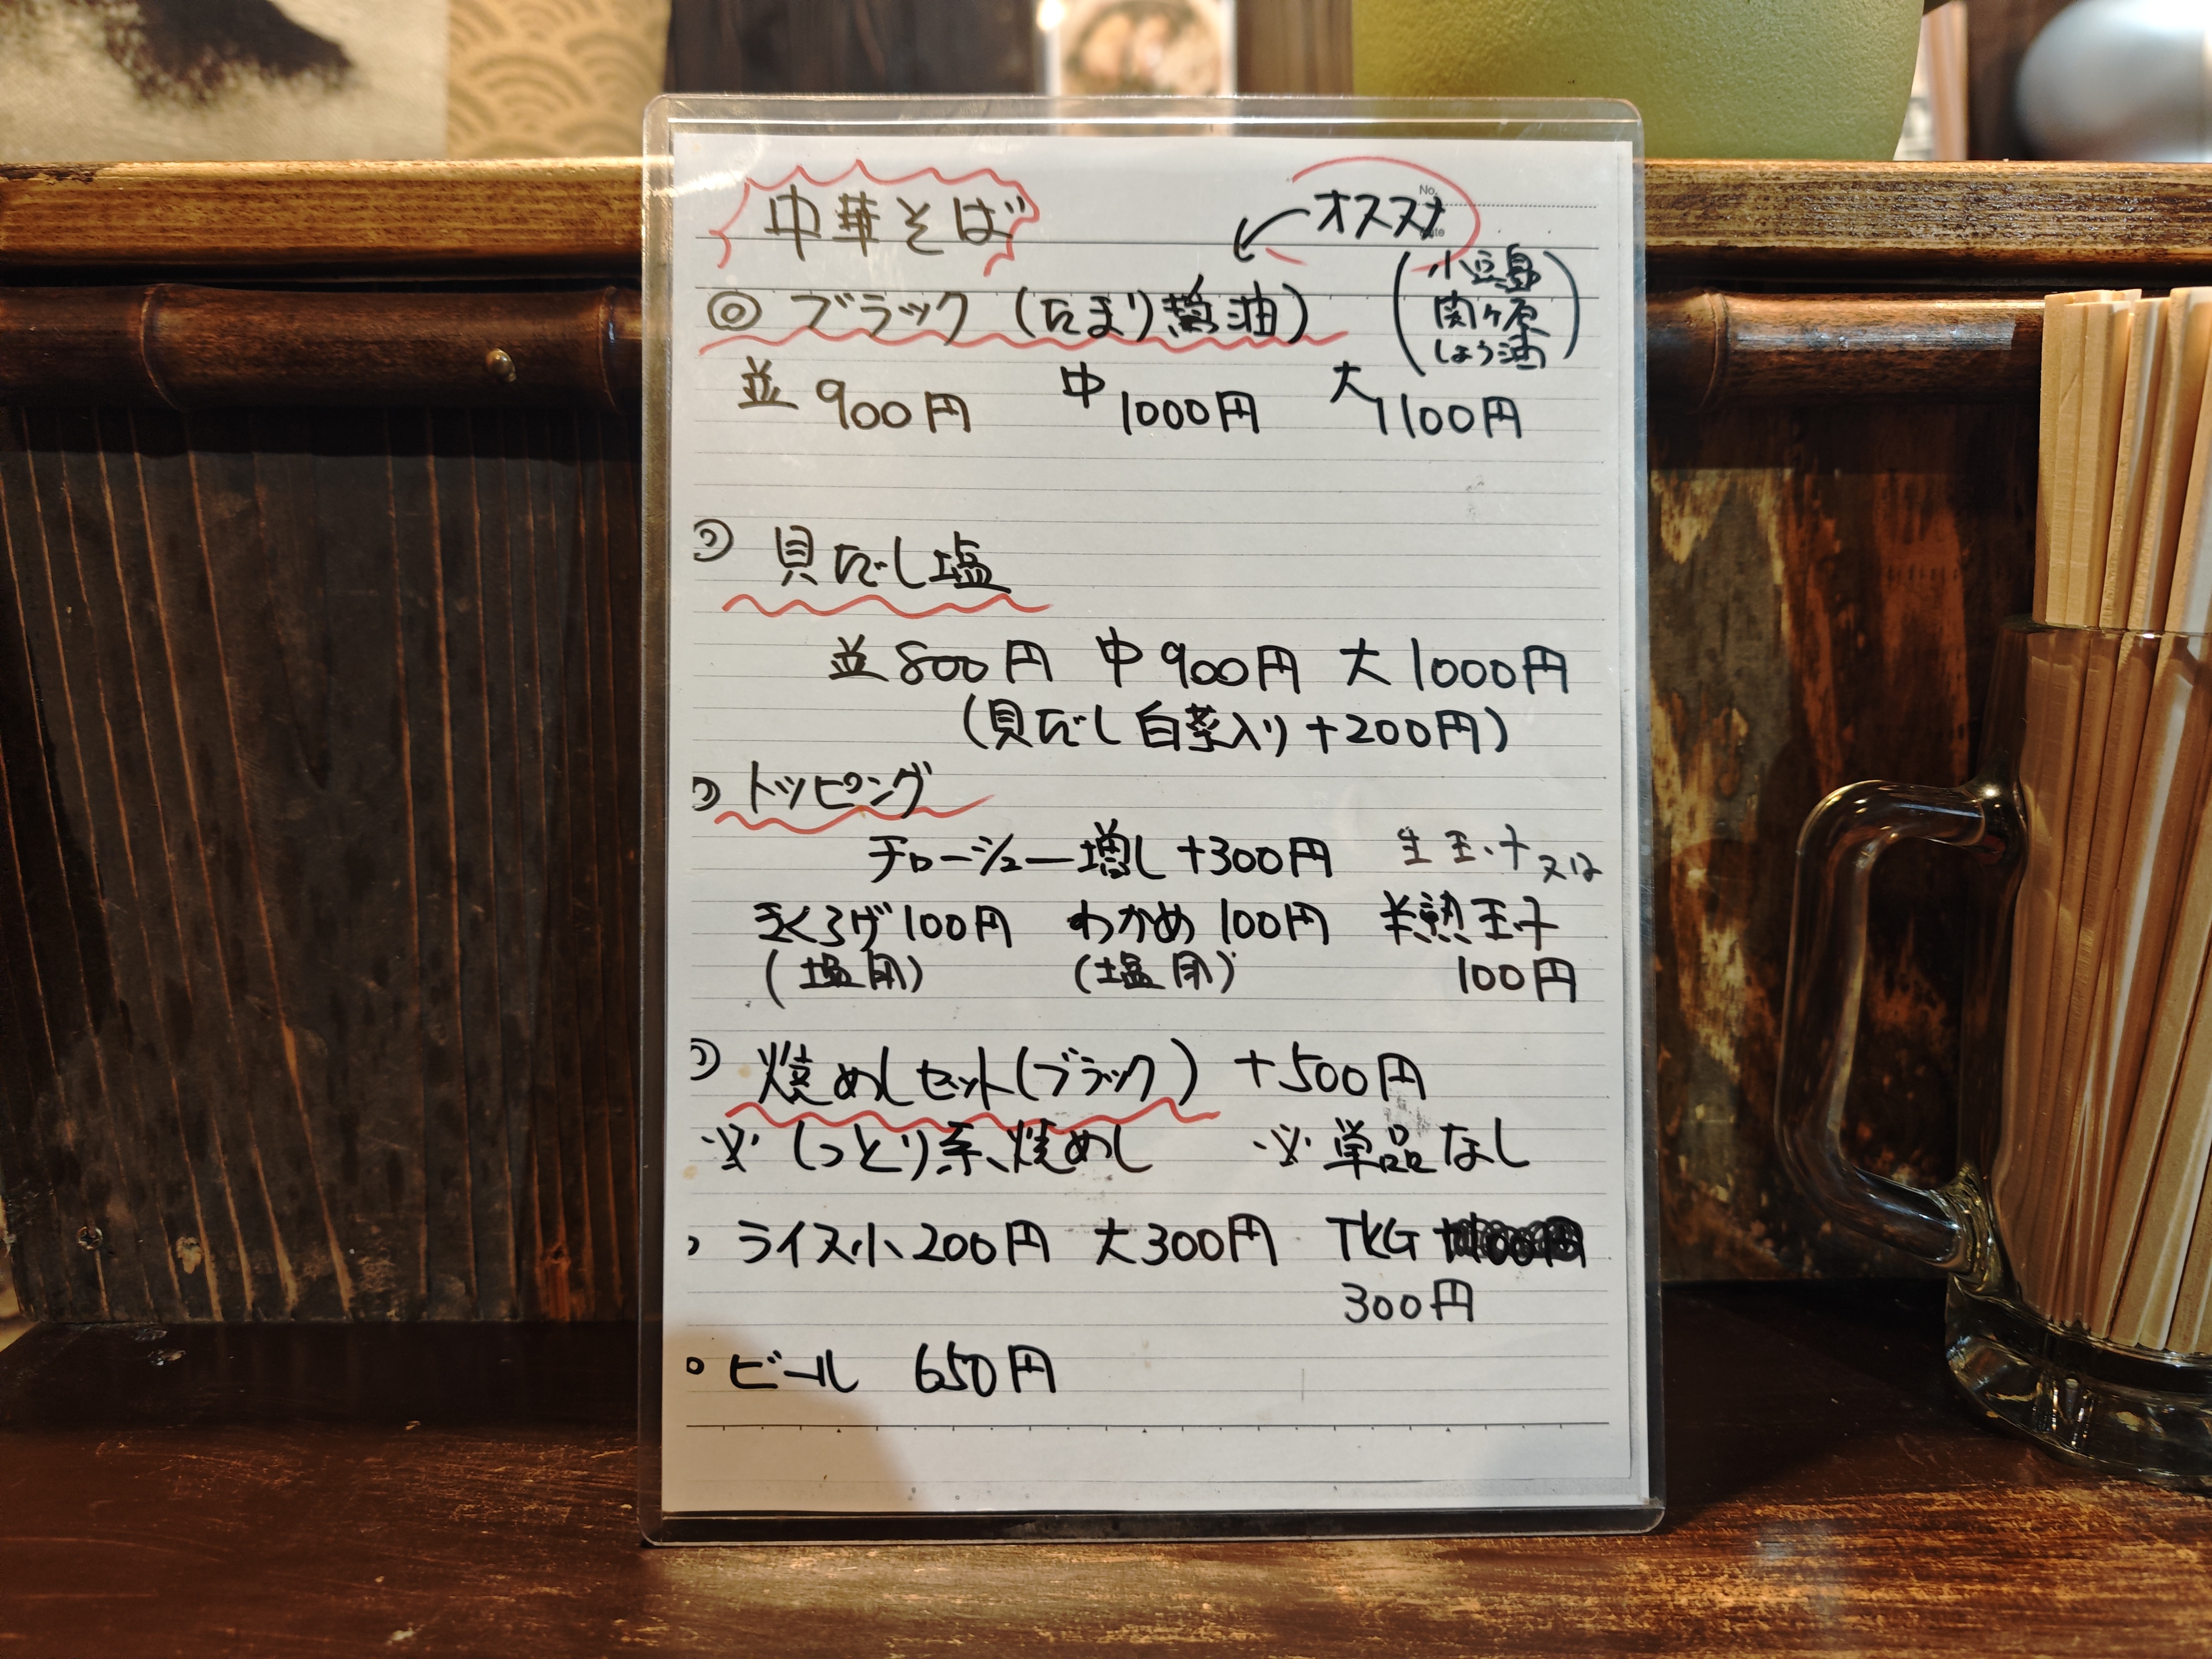 中華そば
オススメ
◎ ブラック (たまり醤油)
(小豆島
関ヶ原
しょう油)
並 900円 中 1000円 大 1100円
貝だし塩
並800円 中900円 大1000円
(貝だし白菜入り+200円)
トッピング
チャーシュー増し+300円
生玉子又は
きくらげ100円 わかめ100円 半熟玉子
(塩用) (塩用) 100円
焼めしセット(ブラック) +500円
※しっとり系焼めし ※単品なし
ライス小200円 大300円 TKG
300円
ビール 650円